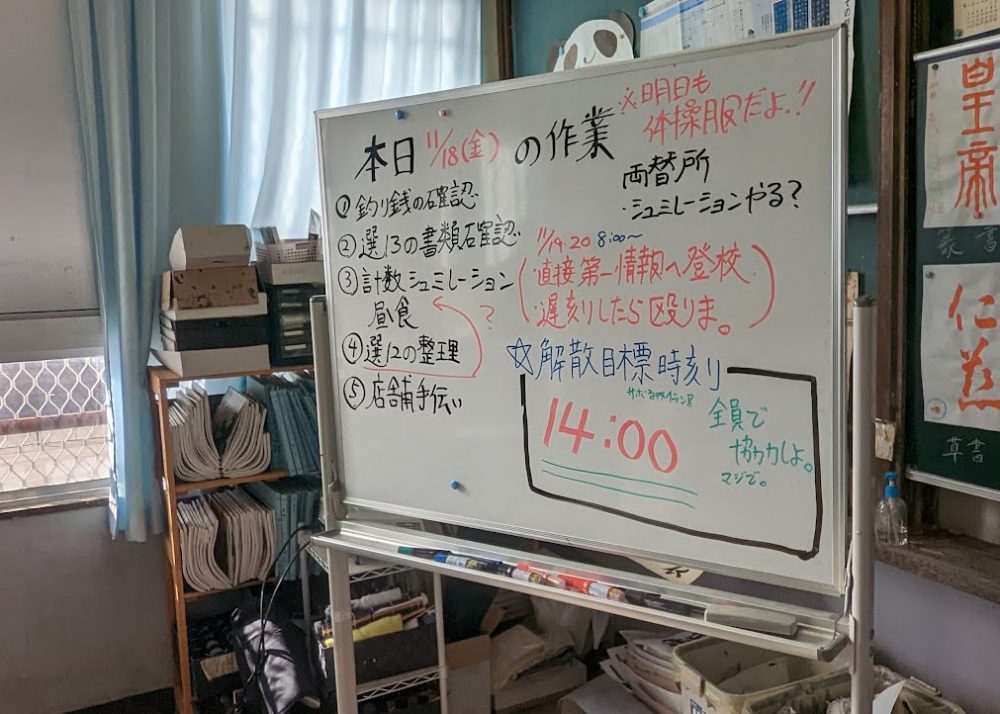 本日 11/18(金) の作業
※明日も
体操服だよ!!
① 釣り銭の確認
② 選13の書類確認
③ 計数シュミレーション
昼食
④ 選12の整理
⑤ 店舗手伝い
?
両替所
・シュミレーションやる?
11/19・20 8:00～
直接第一情報へ登校
遅刻したら殴りま。
☆解散目標時刻
14:00
全員で
協力しよ。
マジで。
皇帝
篆書
仁愛
草書